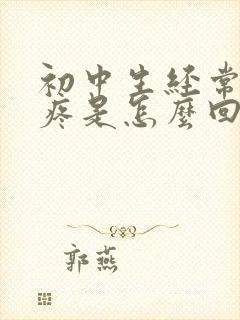 初中生経常
疼是怎麼回
郭燕